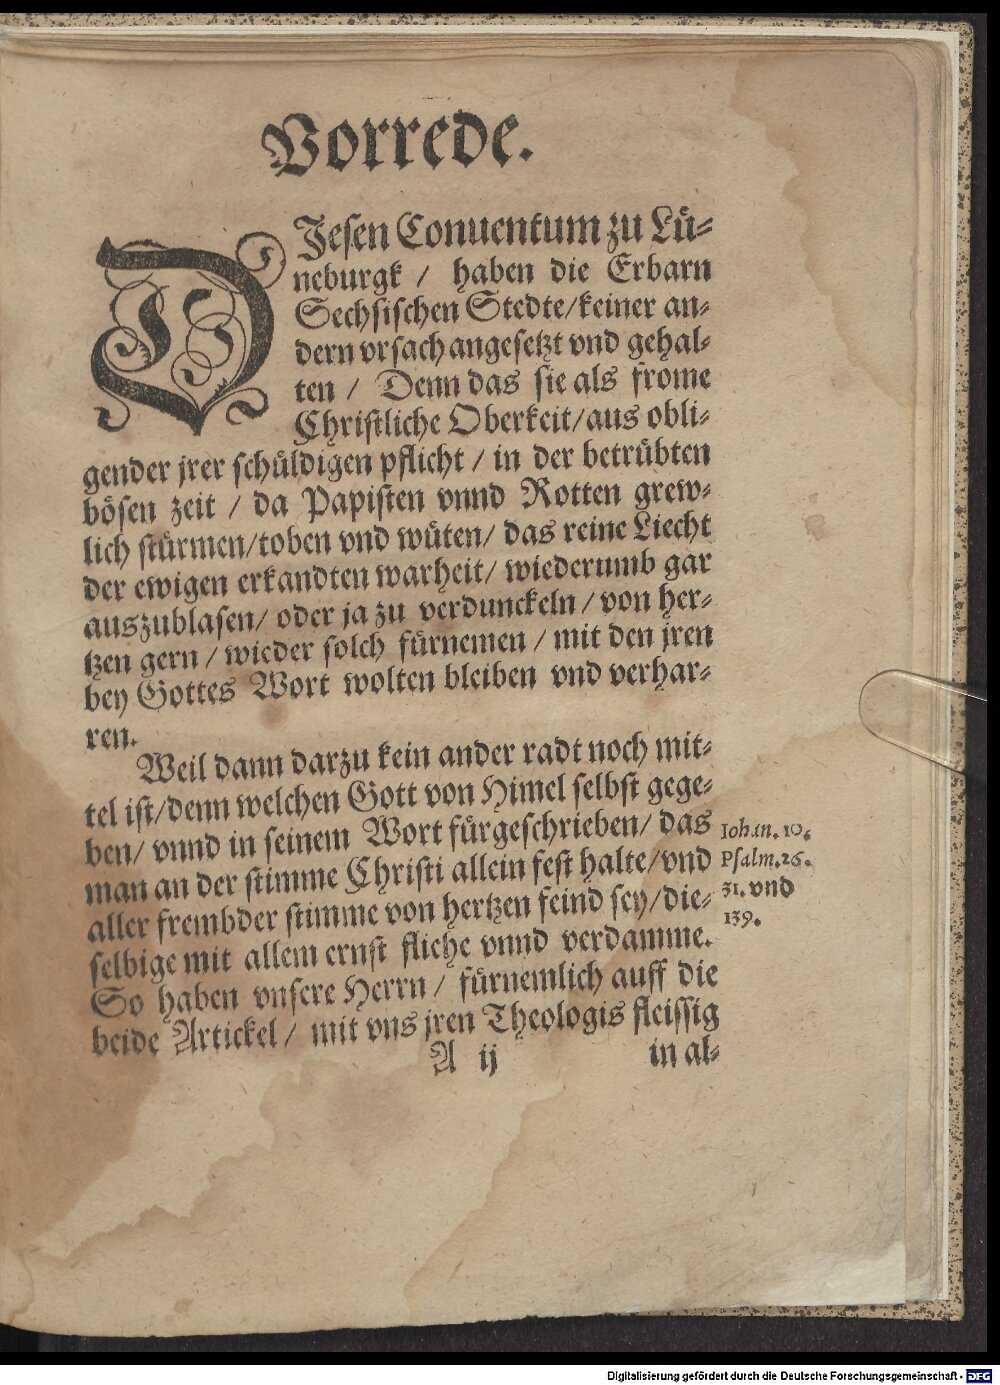 Vorrede.
DJesen Conuentum zu Lü-
neburgk / haben die Erbarn
Sechsischen Stedte/keiner an-
dern vrsach angesetzt vnd gehal-
ten / Denn das sie als frome
Christliche Oberkeit/aus obli-
gender jrer schüldigen pflicht / in der betrübten
bösen zeit / da Papisten vnnd Rotten grew-
lich stürmen/toben vnd wüten/ das reine Liecht
der ewigen erkandten warheit/ wiederumb gar
auszublasen/ oder ja zu verdunckeln / von her-
tzen gern / wieder solch fürnemen / mit den jren
bey Gottes Wort wolten bleiben vnd verhar-
ren.
Weil dann darzu kein ander radt noch mit-
tel ist/denn welchen Gott von Himel selbst gege-
ben/ vnnd in seinem Wort fürgeschrieben/ das
man an der stimme Christi allein fest halte/vnd
aller frembder stimme von hertzen feind sey/die-
selbige mit allem ernst fliehe vnnd verdamme.
So haben vnsere Herrn / fürnemlich auff die
beide Artickel / mit vns jren Theologis fleissig
A ij in al-
Iohan. 10.
Psalm. 26.
31. vnd
139.
Digitalisierung gefördert durch die Deutsche Forschungsgemeinschaft - DFG